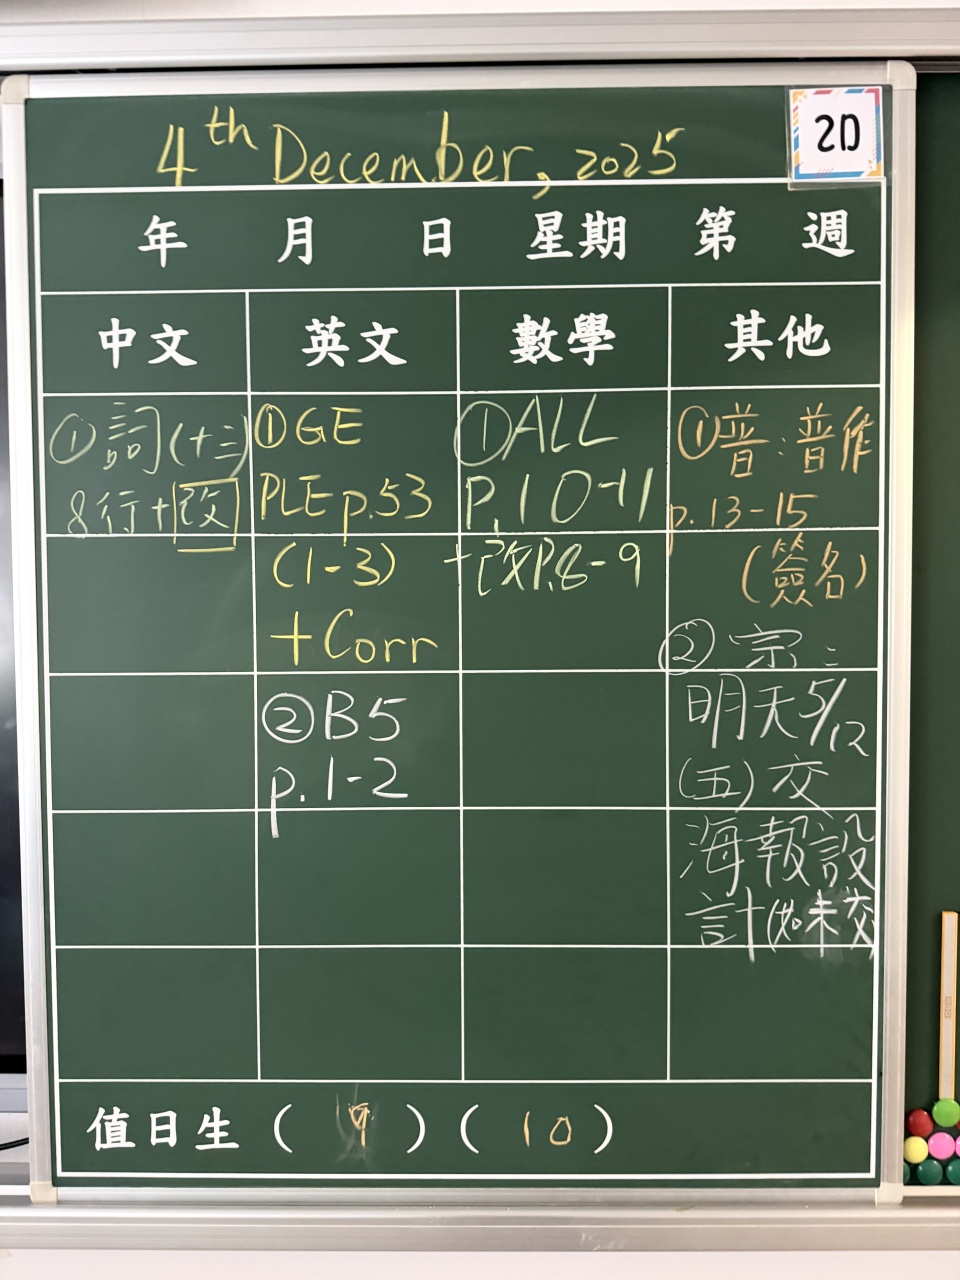 4th December, 2025
2D
年 月 日 星期 第 週
中文 英文 數學 其他
①詞(十三)
8行+改
①GE
PLE p.53
(1-3)
+Corr
②B5
p.1-2
①ALL
P.10-11
+改P.8-9
①普:普作
p.13-15
(簽名)
②宗:
明天5/12
(五)交
海報設
計(如未交)
值日生( 9 )( 10 )